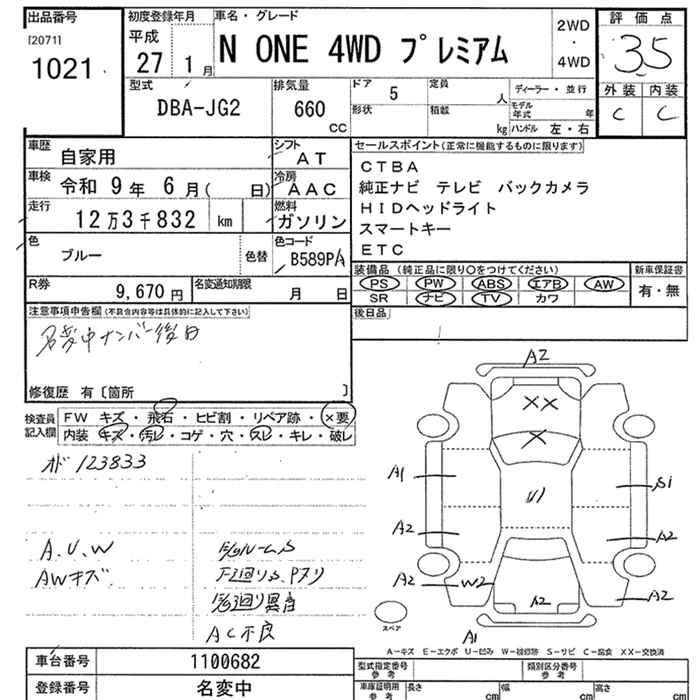 出品番号
[2071]
1021
初度登録年月
平成
27 1月
車名・グレード
N ONE 4WD プレミアム
2WD
・
4WD
評価点
3.5
外装 内装
C C
型式
DBA-JG2
排気量
660
CC
ドア 5
形状
定員 人
積載 kg
ディーラー・並行
モデル年式 年
ハンドル 左・右
車歴 自家用
シフト AT
車検 令和 9年 6月( 日)
冷房 AAC
走行 12万3千832 km
燃料 ガソリン
色 ブルー 色替
色コード B589PA
R券 9,670円
名変通知期限 月 日
セールスポイント(正常に機能するものに限ります)
CTBA
純正ナビ テレビ バックカメラ
HIDヘッドライト
スマートキー
ETC
装備品 (純正品に限り○をつけてください)
PS PW ABS エアB AW
SR ナビ TV カワ
新車保証書
有・無
後日品
注意事項申告欄(不具合内容等は具体的に記入して下さい)
名変中ナンバー後日
修復歴 有〔箇所 〕
検査員記入欄
FW キズ・飛石・ヒビ割・リペア跡・×要
内装 キズ・汚レ・コゲ・穴・スレ・キレ・破レ
オド 123833
A.U.W
AWキズ
E/gルームS
下廻りS、Pヌリ
E/g廻り異音
AC不良
A2
XX
X
A1
U1
S1
A2
A2
A2
W2
A2
A2
A1
スペア
A-キズ E-エクボ U-凹み W-補修跡 S-サビ C-腐食 XX-交換済
車台番号 1100682
登録番号 名変中
型式指定番号 参考
類別区分番号 参考
車庫証明用 参考
長さ cm
幅 cm
高さ cm